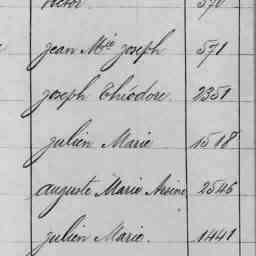 Victor 570
Jean Mie Joseph 571
Joseph Théodore. 2351
Julien Marie 1518
Auguste Marie Arsène 2546
Julien Marie. 1441